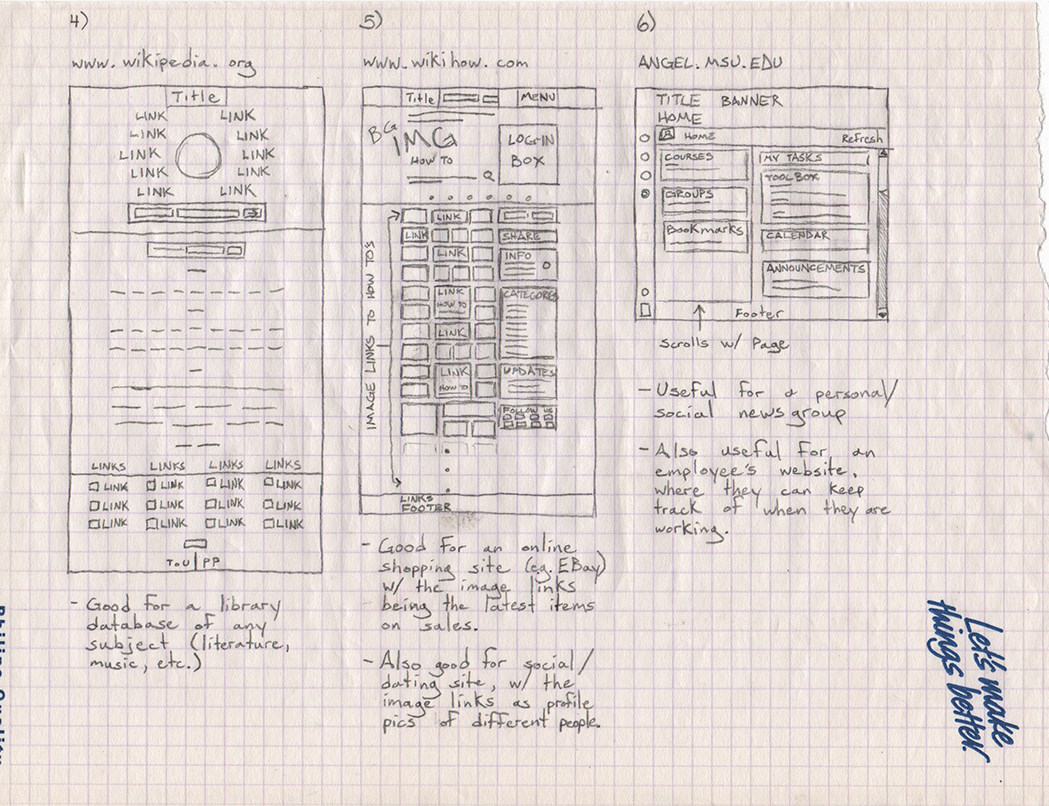 4)
www.wikipedia.org
Title
LINK LINK
LINK LINK
LINK LINK
LINK LINK
LINK LINK
LINKS LINKS LINKS LINKS
LINK LINK LINK LINK
LINK LINK LINK LINK
LINK LINK LINK LINK
TOU PP
- Good for a library
database of any
subject (literature,
music, etc.)
5)
www.wikihow.com
Title MENU
BG
IMG
HOW TO
LOG-IN
BOX
IMAGE LINKS TO HOW TO'S
LINK
LINK
LINK
LINK
HOW TO
LINK
LINK
HOW TO
SHARE
INFO
CATEGORIES
UPDATES
FOLLOW US
LINKS
FOOTER
- Good for an online
shopping site (e.g. EBay)
w/ the image links
being the latest items
on sales.
- Also good for social/
dating site, w/ the
image links as profile
pics of different people.
6)
ANGEL.MSU.EDU
TITLE BANNER
HOME
A HOME Refresh
COURSES
GROUPS
Bookmarks
MY TASKS
TOOLBOX
CALENDAR
ANNOUNCEMENTS
Footer
Scrolls w/ Page
- Useful for a personal/
social news group
- Also useful for an
employee's website,
where they can keep
track of when they are
working.
Let's make
things better.